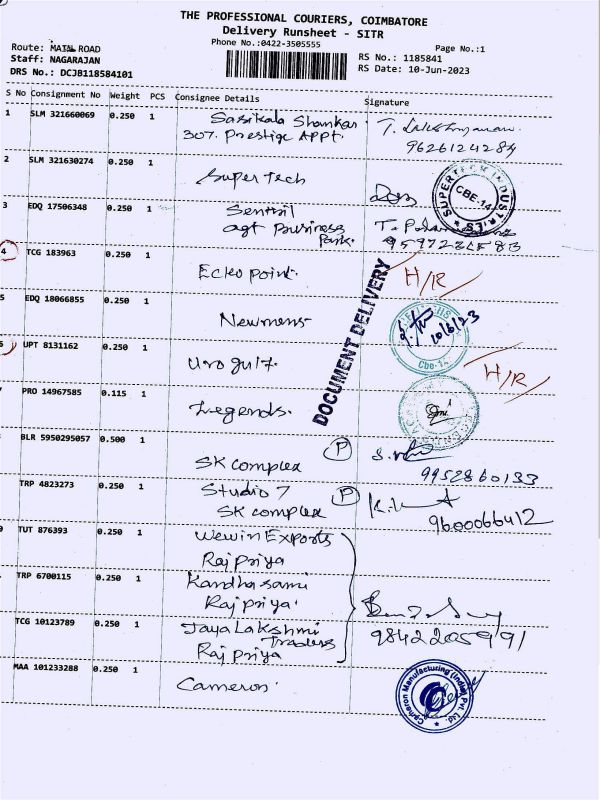 THE PROFESSIONAL COURIERS, COIMBATORE
Delivery Runsheet - SITR
Phone No.:0422-3505555
Page No.:1
Route: MAIN ROAD
Staff: NAGARAJAN
DRS No.: DCJB118584101
RS No.: 1185841
RS Date: 10-Jun-2023
S No Consignment No Weight PCS Consignee Details Signature
1 SLM 321660069 0.250 1 Sasikala Shankar
307. Prestige APPt.
9626124284
2 SLM 321630274 0.250 1 Super Tech
SUPERTECH INDUSTRIES
CBE-14
3 EDQ 17506348 0.250 1 Senthil
agt Business
Park.
4 TCG 183963 0.250 1 Ecko point. H/R
DOCUMENT DELIVERY
5 EDQ 18066855 0.250 1 Newmens 10/6/23
Cbe-14
UPT 8131162 0.250 1 H/R
PRO 14967585 0.115 1 Legends.
BLR 5950295057 0.500 1 SK complex P
9952860133
TRP 4823273 0.250 1 Studio 7
SK complex P
9600066412
TUT 876393 0.250 1 Wewin Exports
Rajpriya
TRP 6700115 0.250 1 Kandhasami
Rajpriya.
TCG 10123789 0.250 1 Jaya Lakshmi
Traders
Rajpriya
MAA 101233288 0.250 1 Cameron.
Cameron Manufacturing (India) Pvt. Ltd.